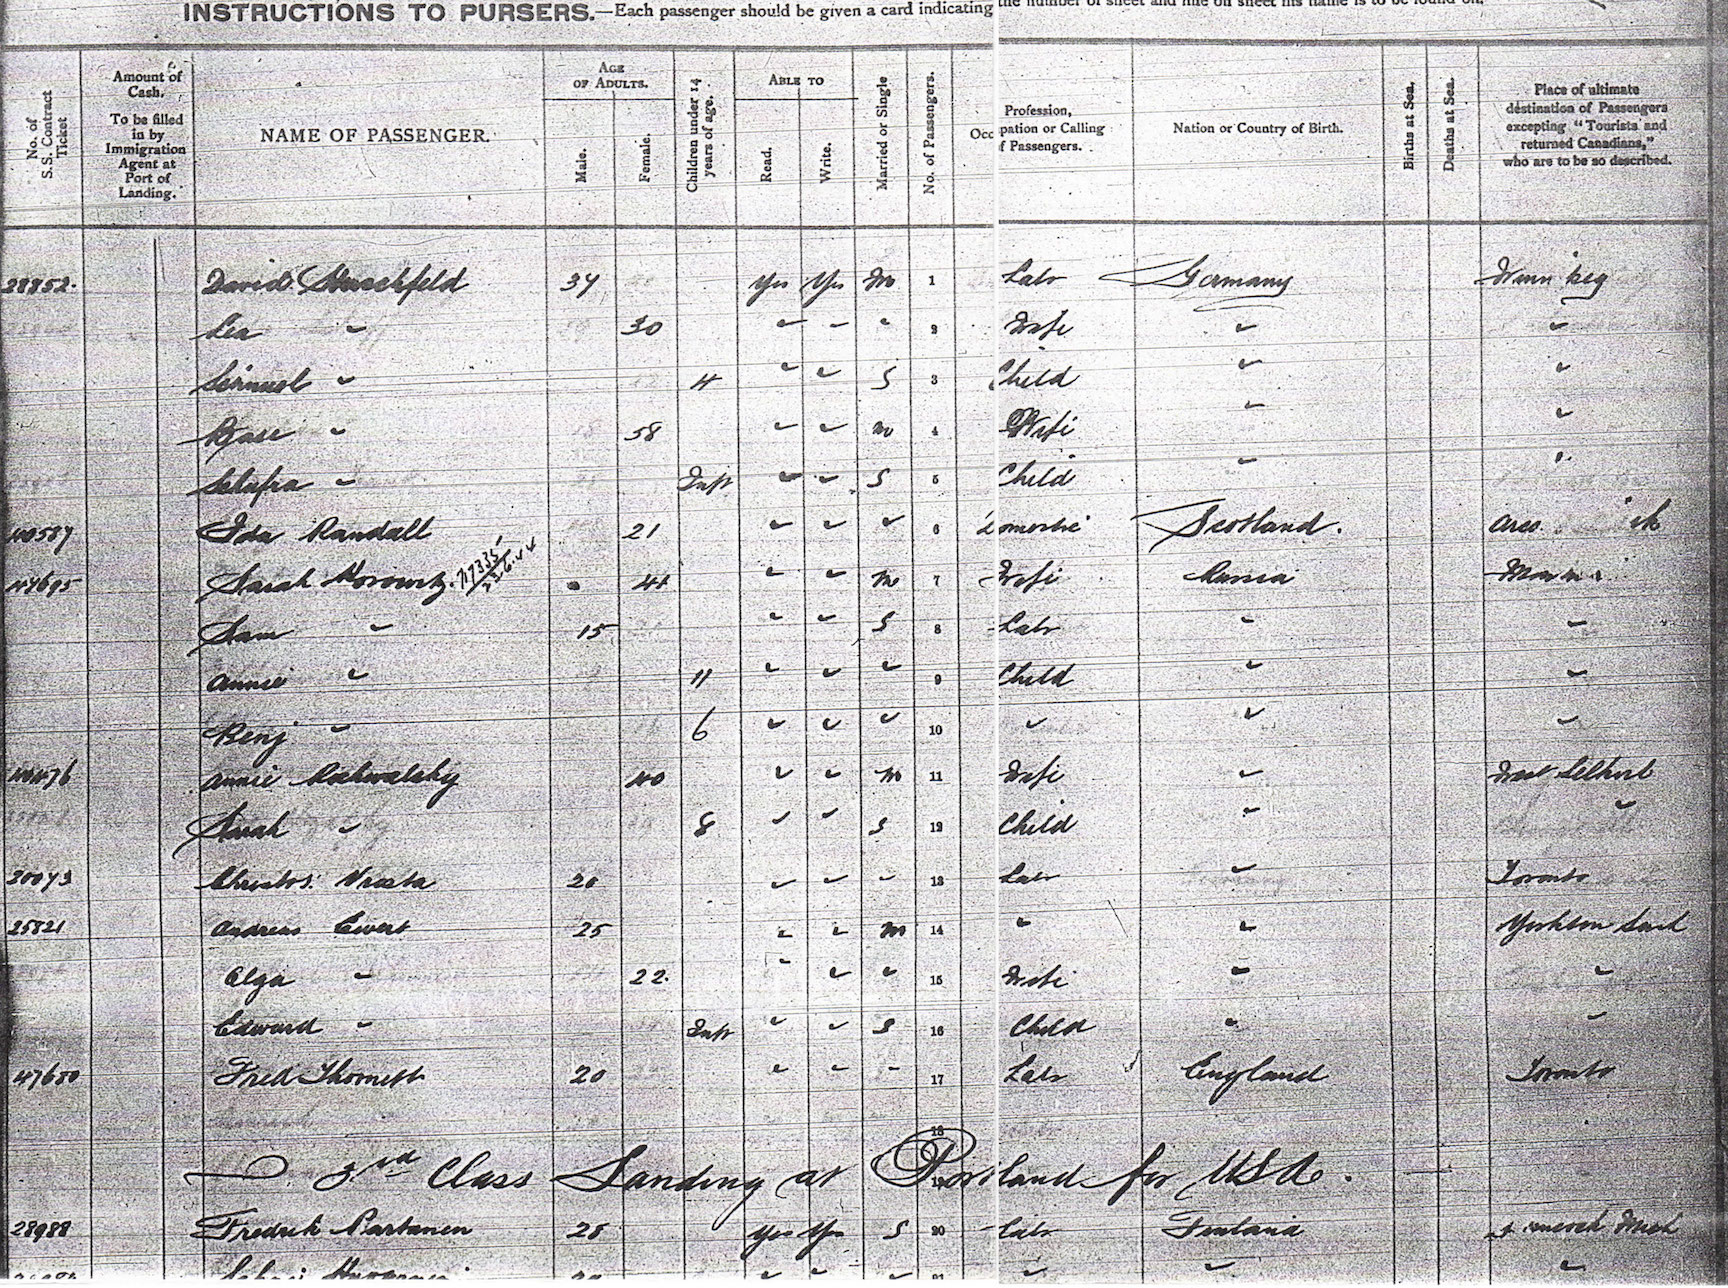 INSTRUCTIONS TO PURSERS.—Each passenger should be given a card indicating the number of sheet and line on sheet his name is to be found on.
No. of S.S. Contract Ticket
Amount of Cash. To be filled in by Immigration Agent at Port of Landing.
NAME OF PASSENGER.
AGE OF ADULTS.
Male.
Female.
Children under 14 years of age.
ABLE TO
Read.
Write.
Married or Single
No. of Passengers.
Occ
Profession,
pation or Calling
f Passengers.
Nation or Country of Birth.
Births at Sea.
Deaths at Sea.
Place of ultimate destination of Passengers excepting "Tourists and returned Canadians," who are to be so described.
28852. David Hirschfeld 34 Yes Yes M 1 Labr Germany Winnipeg
Lea " 30 " " " 2 Wife " "
" 4 " " S 3 Child " "
" 58 " " M 4 Wife " "
" Inft " " S 5 Child " "
40587 Ida Randall 21 " " " 6 Domestic Scotland.
Sarah Horowitz. 717335/23.6.44 " " M 7 Wife Russia
Sam " 15 " " S 8 Labr " "
Annie " 11 " " " 9 Child " "
Benj " 6 " " " 10 " " "
Annie 40 " " M 11 Wife " West
Sarah " 8 " " S 12 Child " "
Christos 20 " " " 13 Labr " Toronto
25821 Andreas Ewert 25 " " M 14 " " Yorkton Sask
Olga " 22. " " " 15 Wife " "
Edward " Inft " " S 16 Child " "
47650 Fred 20 " " " 17 Labr England Toronto
18
3rd Class Landing at Portland for USA.
19
28988 Fredrik Partanen 28 Yes Yes S 20 Labr Finland Mich
21